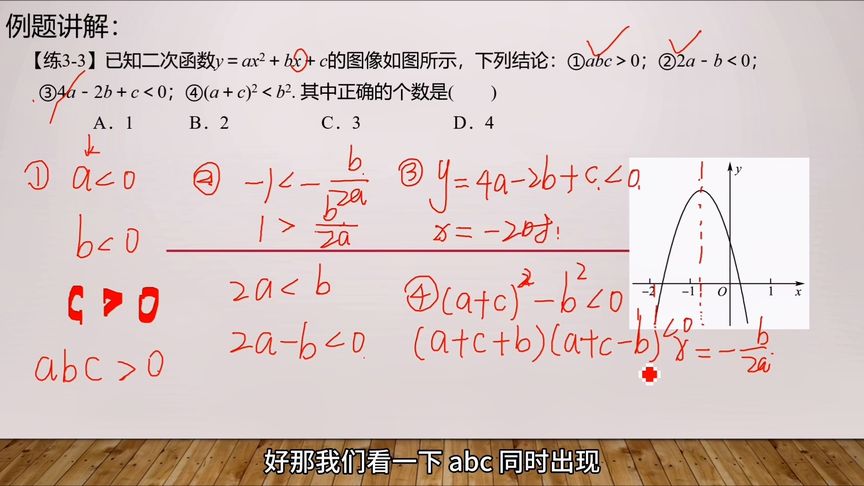 例题讲解：
【练3-3】已知二次函数y＝ax²＋bx＋c的图像如图所示，下列结论：①abc＞0；②2a－b＜0；
③4a－2b＋c＜0；④(a＋c)²＜b². 其中正确的个数是(　　)
A．1　B．2　C．3　D．4
① a<0
b<0
c>0
abc>0
② -1<-b/2a
1>b/2a
2a<b
2a-b<0
③ y=4a-2b+c<0
x=-2时
④(a+c)²-b²<0
(a+c+b)(a+c-b)<0
y
-2 -1 O 1 x
x=-b/2a
好那我们看一下 abc 同时出现